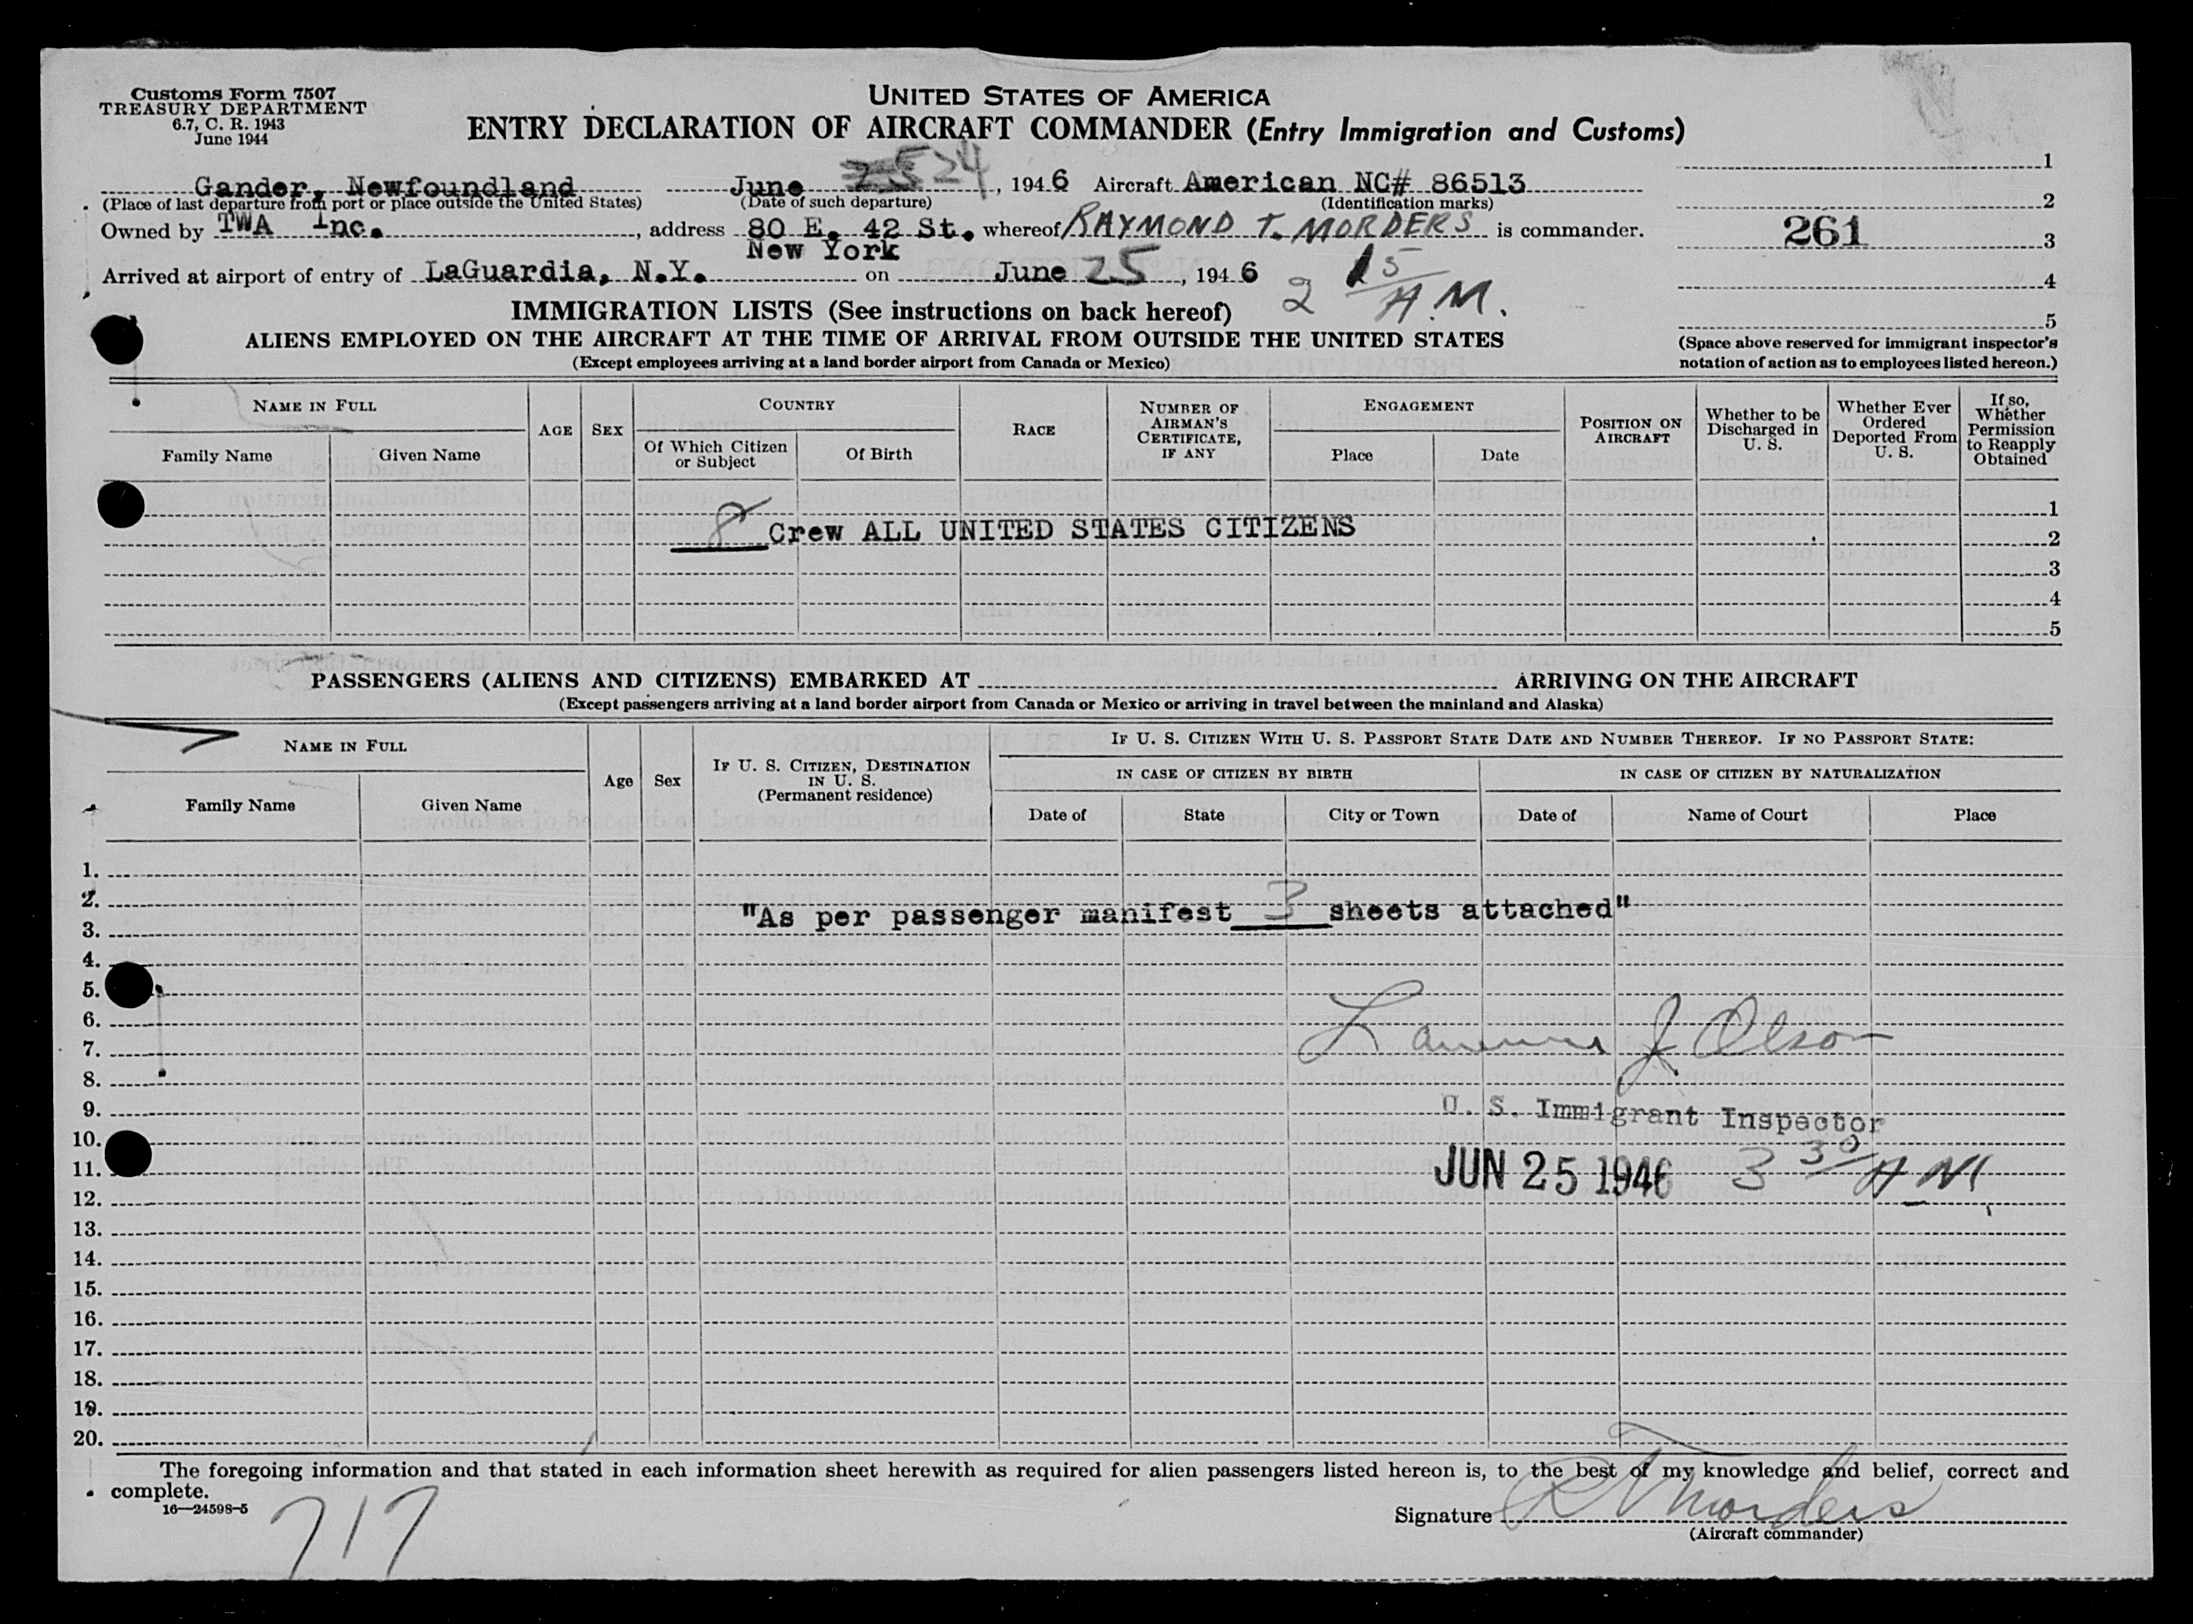 Customs Form 7507
TREASURY DEPARTMENT
6.7, C. R. 1943
June 1944
UNITED STATES OF AMERICA
ENTRY DECLARATION OF AIRCRAFT COMMANDER (Entry Immigration and Customs)
Gander, Newfoundland June 24, 1946 Aircraft American NC# 86513
(Place of last departure from port or place outside the United States) (Date of such departure) (Identification marks)
Owned by TWA Inc., address 80 E. 42 St. whereof RAYMOND T. MORDERS is commander.
New York
Arrived at airport of entry of LaGuardia, N.Y. on June 25, 1946
2 15 A.M.
1
2
261
3
4
5
(Space above reserved for immigrant inspector's
notation of action as to employees listed hereon.)
IMMIGRATION LISTS (See instructions on back hereof)
ALIENS EMPLOYED ON THE AIRCRAFT AT THE TIME OF ARRIVAL FROM OUTSIDE THE UNITED STATES
(Except employees arriving at a land border airport from Canada or Mexico)
NAME IN FULL
Family Name
Given Name
AGE
SEX
COUNTRY
Of Which Citizen
or Subject
Of Birth
RACE
NUMBER OF
AIRMAN'S
CERTIFICATE,
IF ANY
ENGAGEMENT
Place
Date
POSITION ON
AIRCRAFT
Whether to be
Discharged in
U. S.
Whether Ever
Ordered
Deported From
U. S.
If so,
Whether
Permission
to Reapply
Obtained
1
8 Crew ALL UNITED STATES CITIZENS
2
3
4
5
PASSENGERS (ALIENS AND CITIZENS) EMBARKED AT ARRIVING ON THE AIRCRAFT
(Except passengers arriving at a land border airport from Canada or Mexico or arriving in travel between the mainland and Alaska)
NAME IN FULL
Family Name
Given Name
Age
Sex
IF U. S. CITIZEN, DESTINATION
IN U. S.
(Permanent residence)
IF U. S. CITIZEN WITH U. S. PASSPORT STATE DATE AND NUMBER THEREOF. IF NO PASSPORT STATE:
IN CASE OF CITIZEN BY BIRTH
Date of
State
City or Town
IN CASE OF CITIZEN BY NATURALIZATION
Date of
Name of Court
Place
1.
2.
"As per passenger manifest 3 sheets attached"
3.
4.
5.
6.
7.
J Olson
8.
9.
U. S. Immigrant Inspector
10.
11.
JUN 25 1946 3 30 A M
12.
13.
14.
15.
16.
17.
18.
19.
20.
The foregoing information and that stated in each information sheet herewith as required for alien passengers listed hereon is, to the best of my knowledge and belief, correct and
complete.
16—24598-5
717
Signature R T Morders
(Aircraft commander)